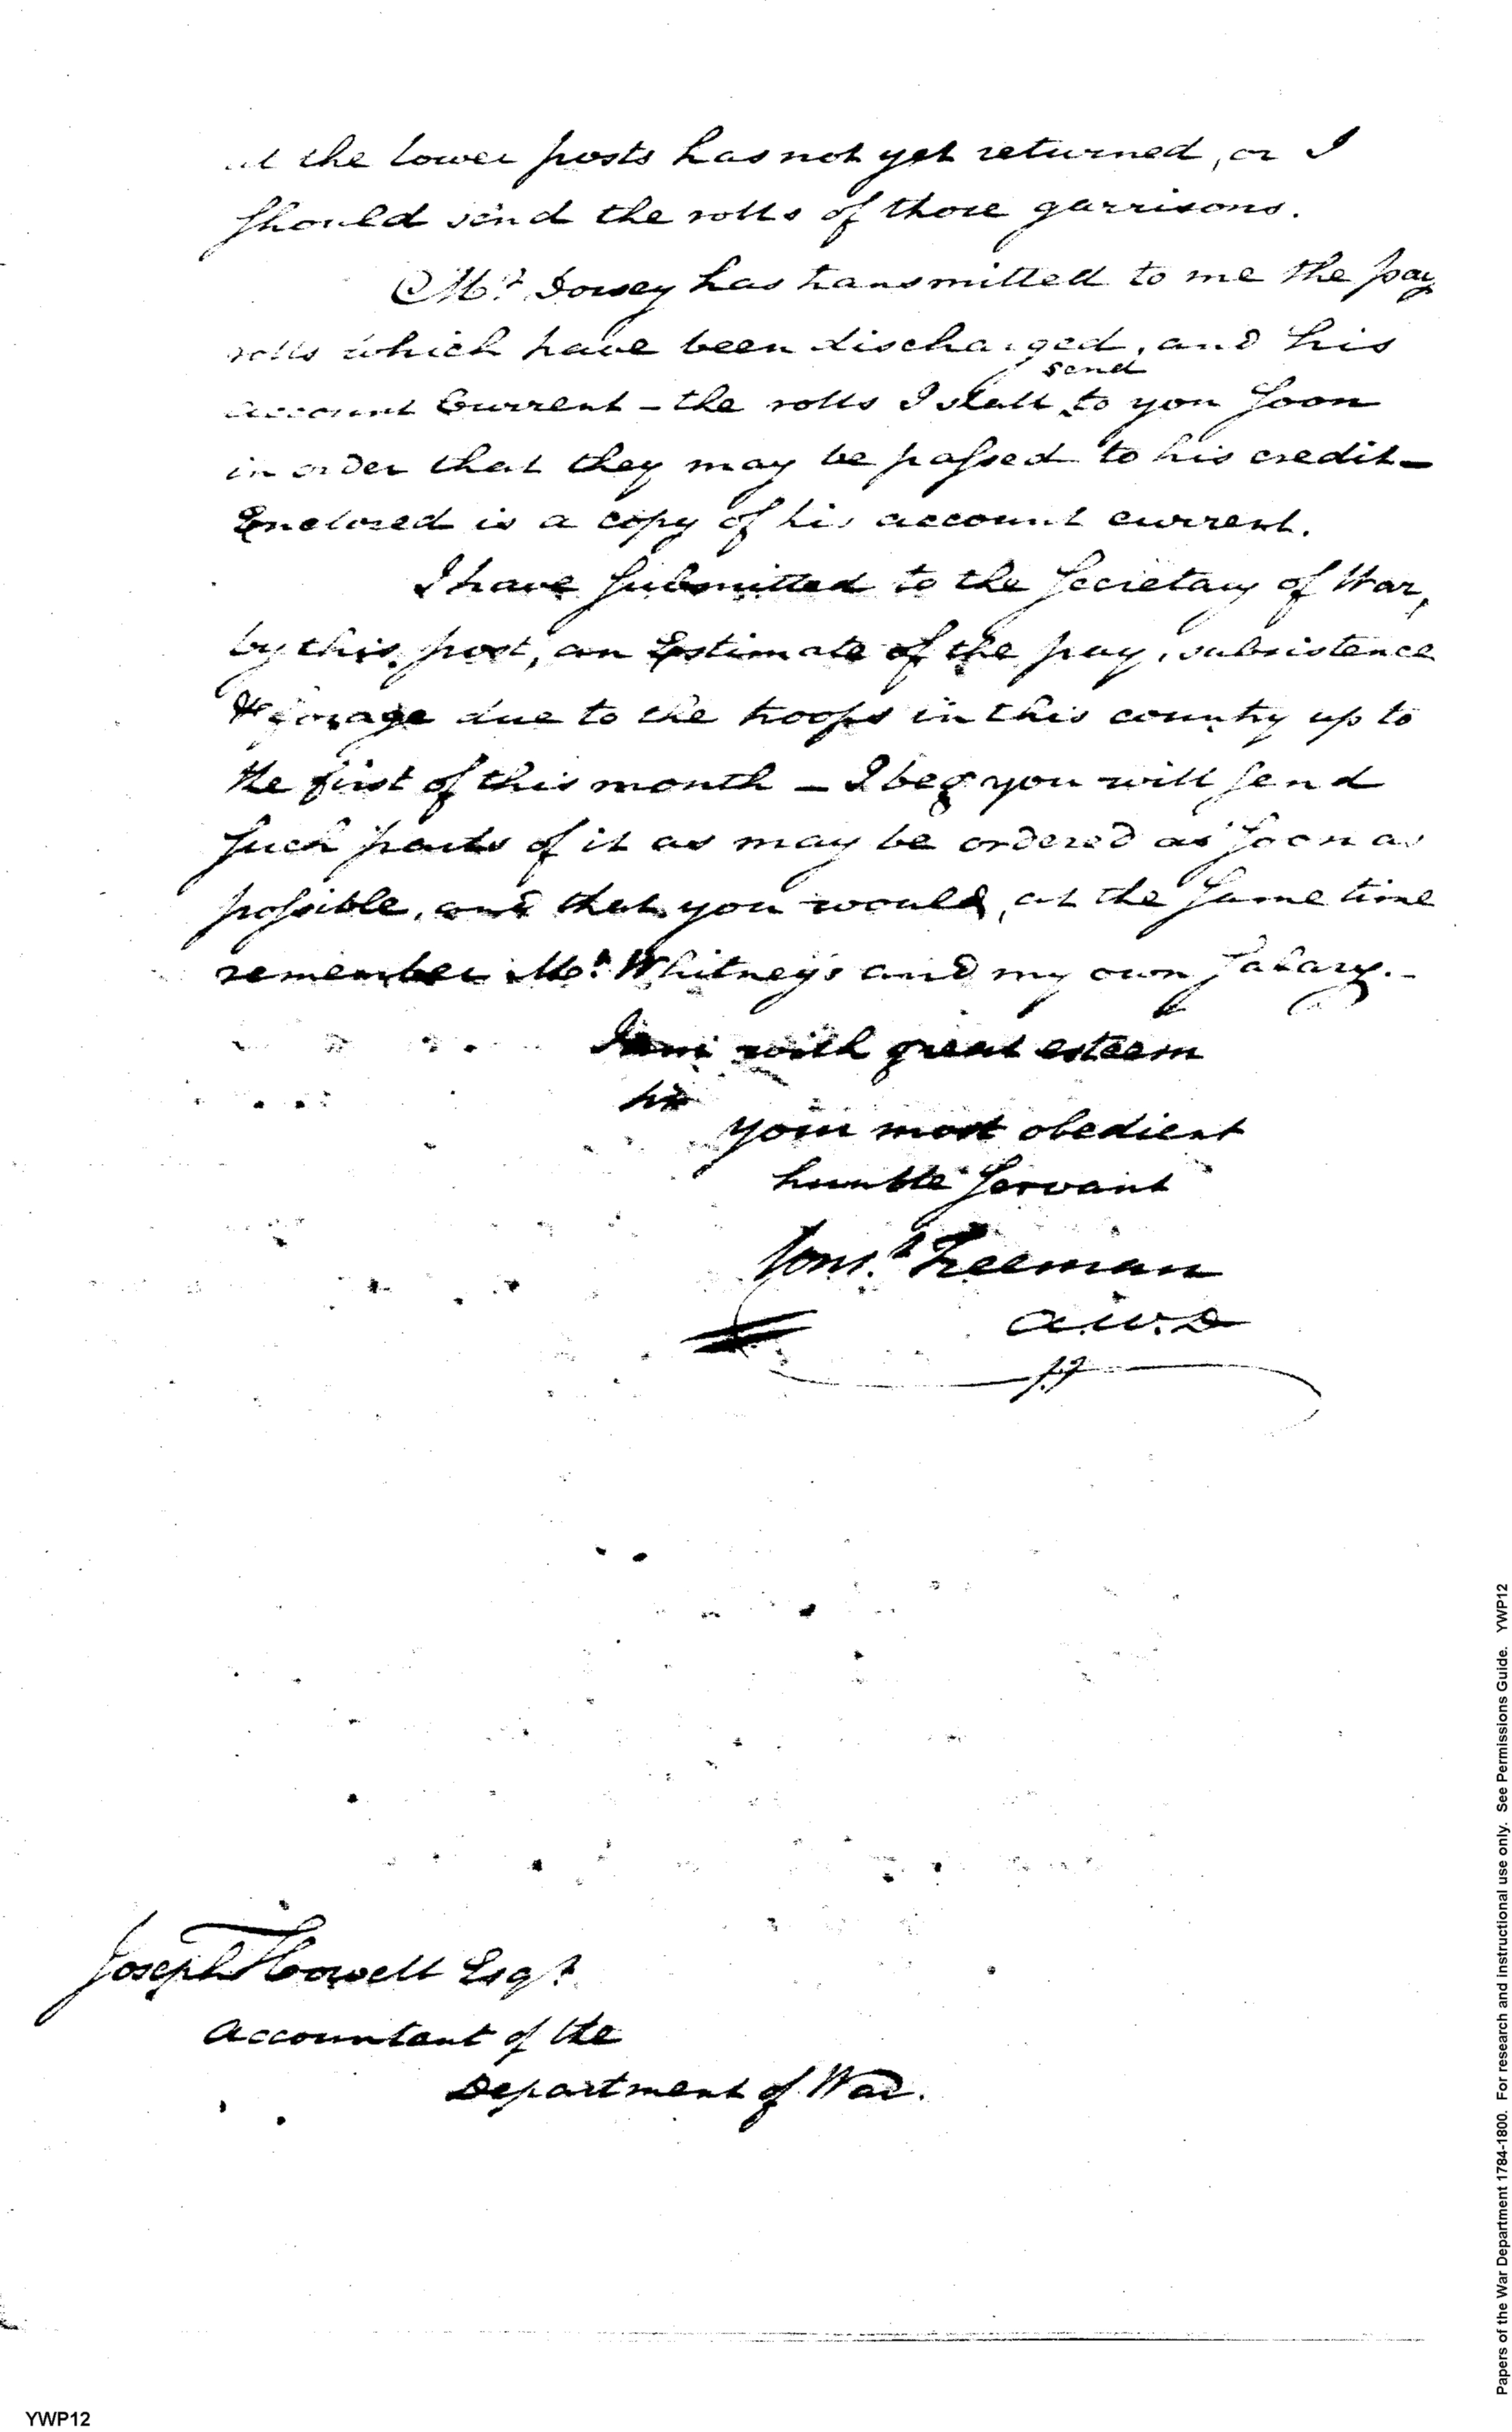 at the lower posts has not yet returned, or I
should send the rolls of those garrisons.
Mr. Dorsey has transmitted to me the pay
rolls which have been discharged, and his
send
account Current – the rolls I shall to you soon
in order that they may be passed to his credit –
Enclosed is a copy of his account current.
I have submitted to the Secretary of War,
by this post, an Estimate of the pay, subsistence
& forage due to the troops in this country up to
the first of this month – I beg you will send
such parts of it as may be ordered as soon as
possible, and that you would, at the same time
remember Mr. Whitney's and my own salary. –
I am with great esteem
Sir
your most obedient
humble servant
Const. Freeman
A.W.D
Joseph Howell Esqr.
Accountant of the
Department of War.
Papers of the War Department 1784-1800. For research and instructional use only. See Permissions Guide. YWP12
YWP12